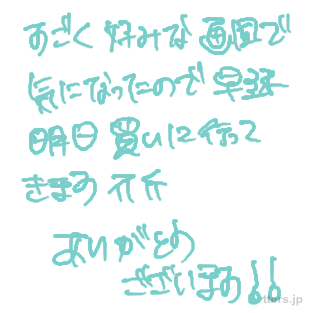 すごく好みな画風で
気になったので早速
明日買いに行って
きます
ありがとう
ございます!!